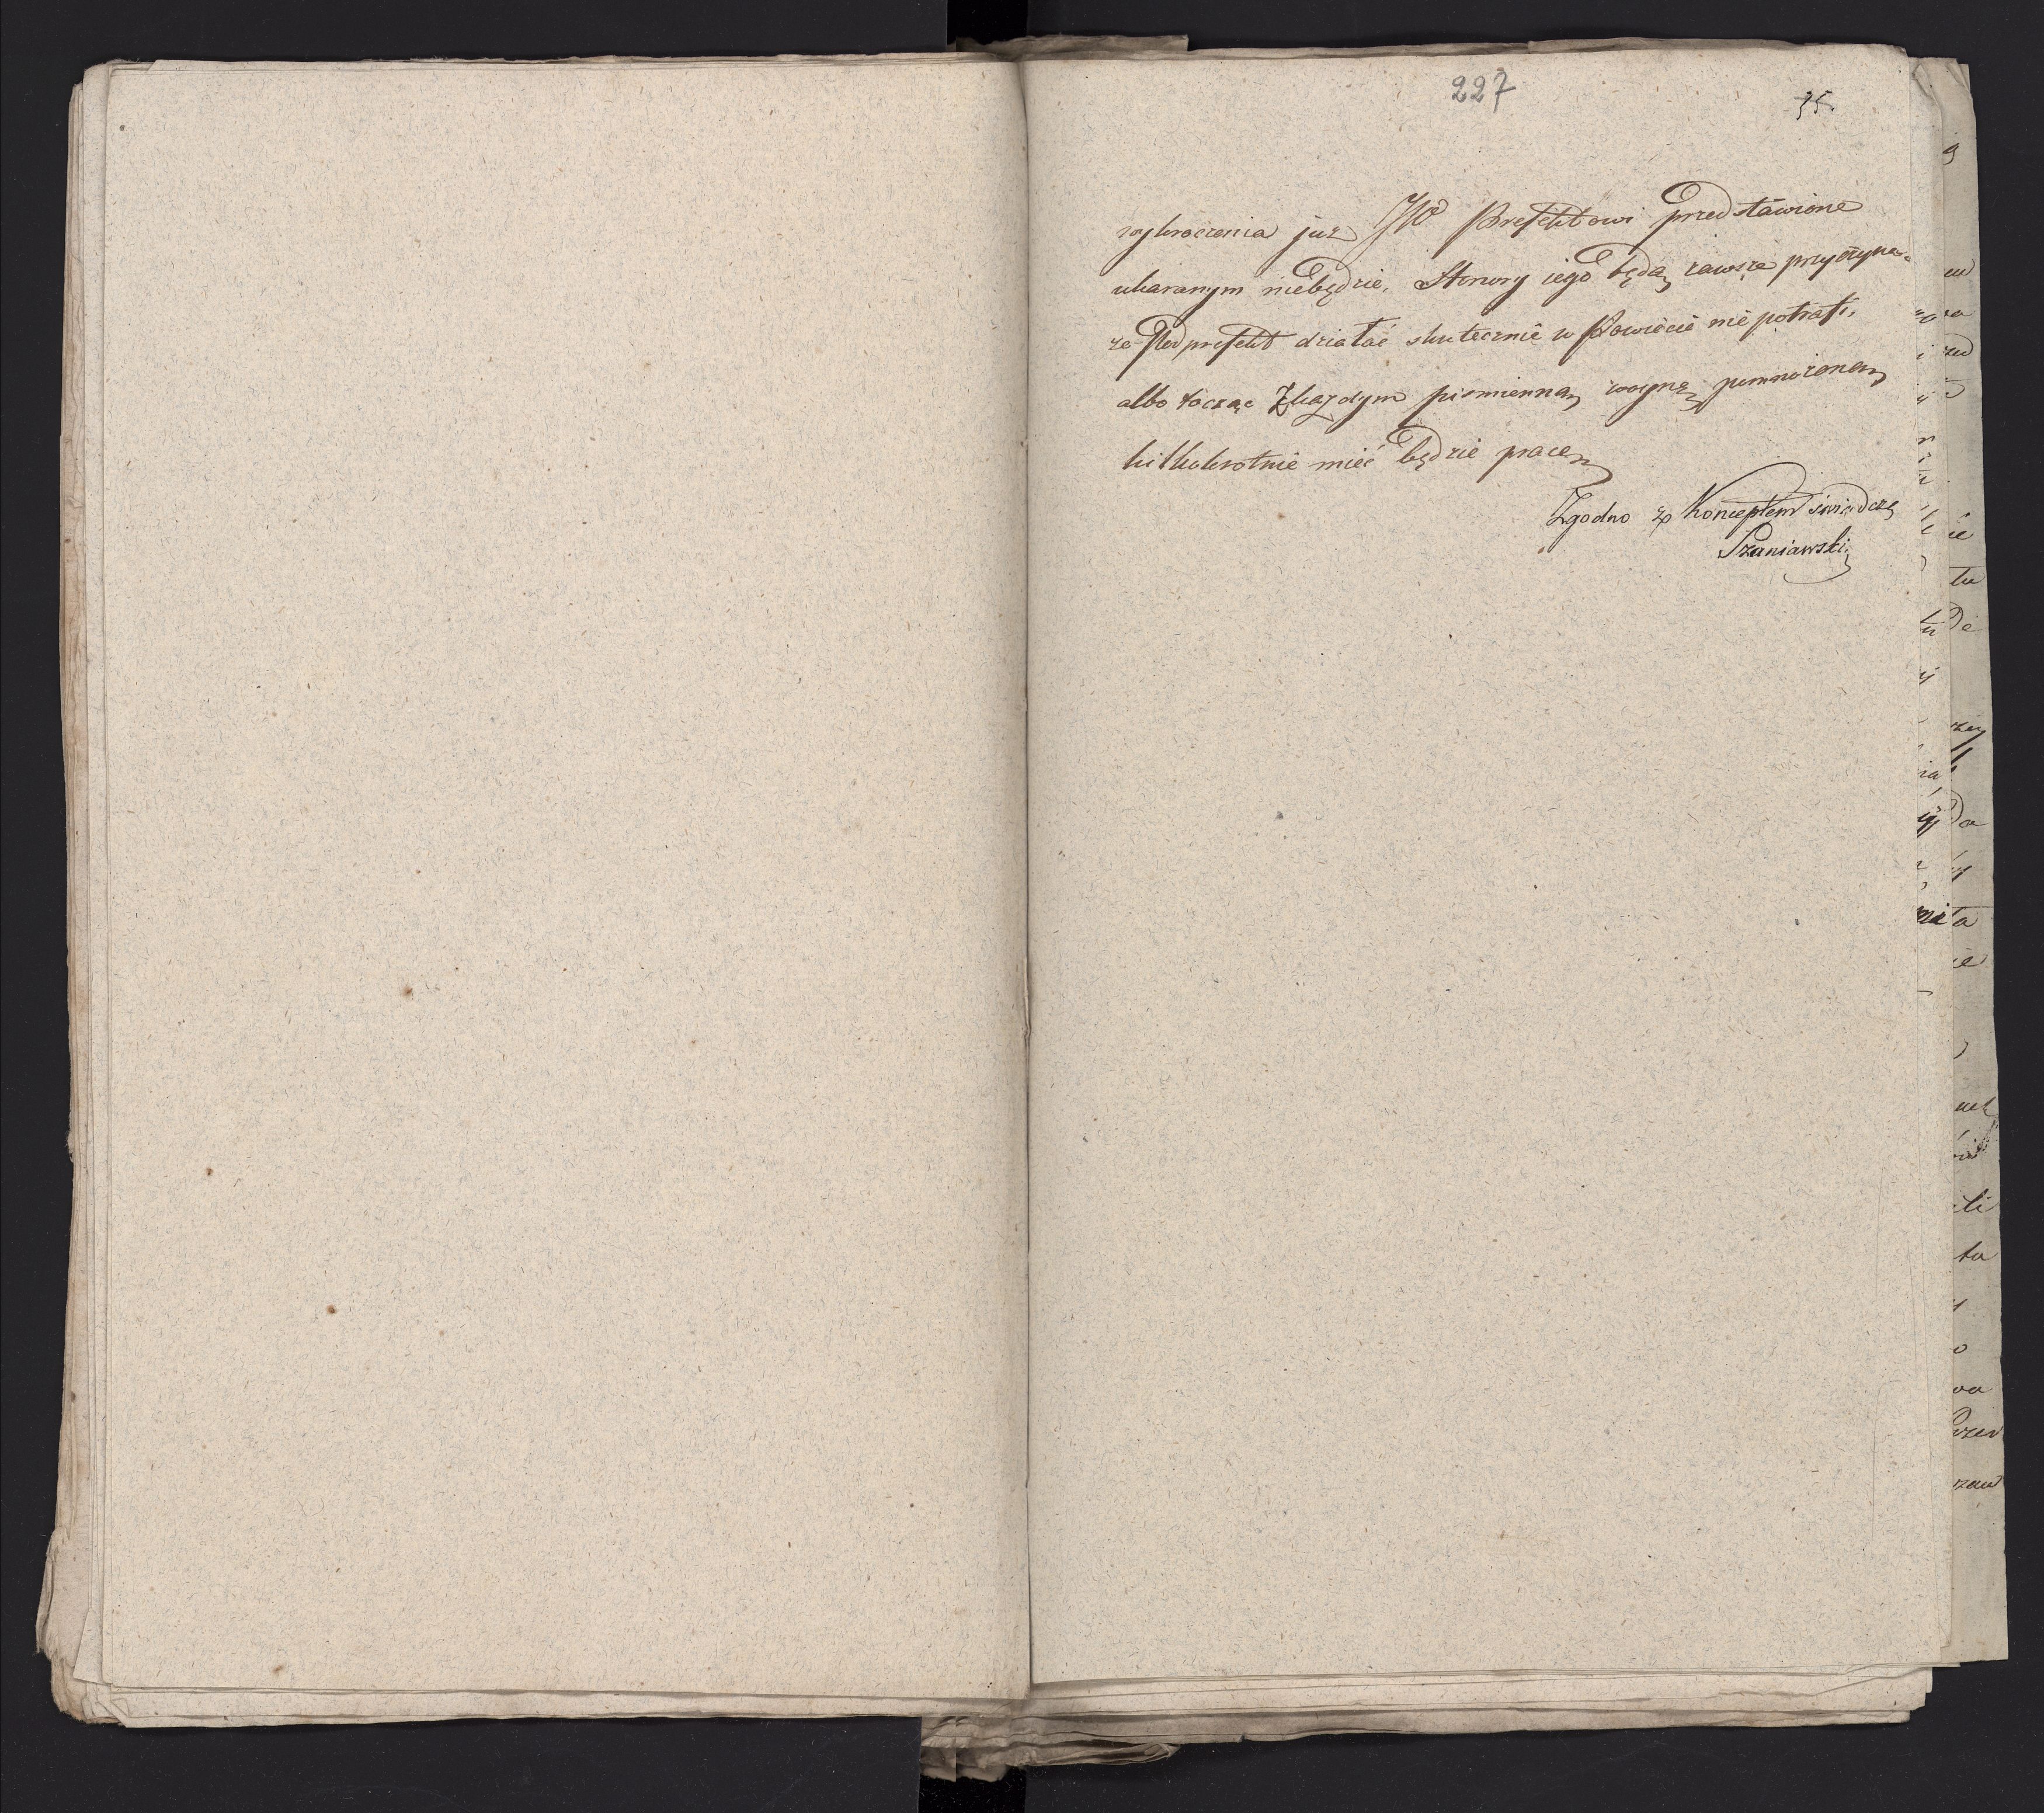 227
35.
wykroczenia już JW Prefektowi przedstawione
ukaranym niebędzie. Stonory iego będą zawsze przyczyną,
że Podprefekt działać skutecznie w Powiecie nie potrafi,
albo tocząc Zkażdym pismienną woynę, pomnożoną
kilkokrotnie mieć będzie pracę
Zgodno z Konceptem świadczę
Szaniawski